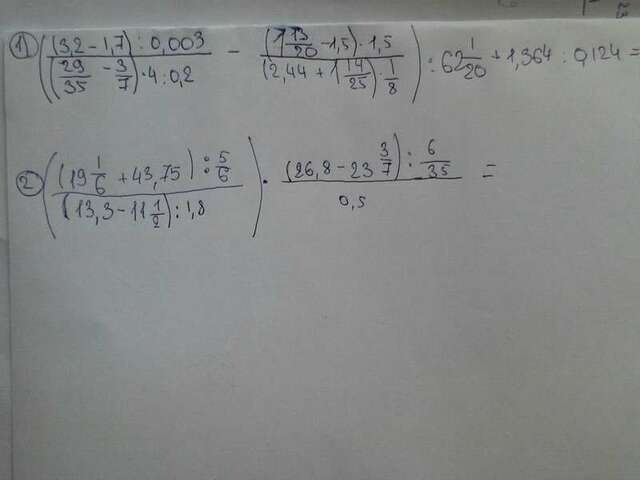 1) ( (3,2 - 1,7) : 0,003 / (29/35 - 3/7) · 4 : 0,2 - (1 13/20 - 1,5) · 1,5 / (2,44 + 1 14/25) · 1/8 ) : 62 1/20 + 1,364 : 0,124 =
2) ( (19 1/6 + 43,75) : 5/6 / (13,3 - 11 1/2) : 1,8 ) · (26,8 - 23 3/7) : 6/35 / 0,5 =
23